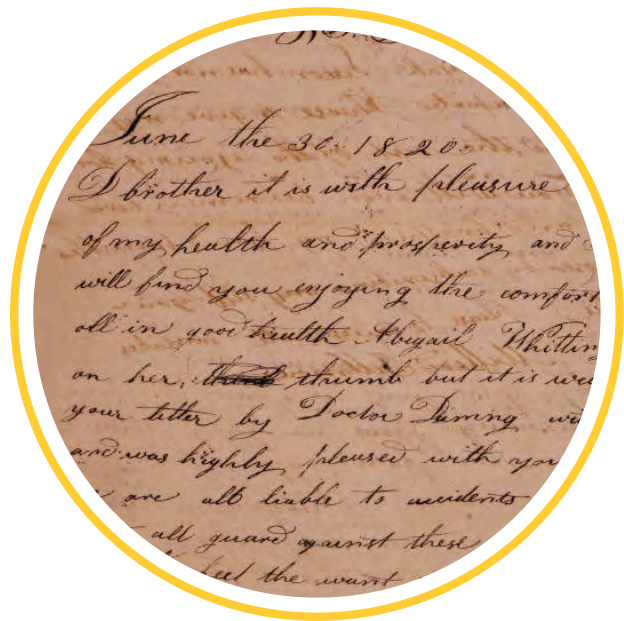 June the 30 1820
D brother it is with pleasure
of my health and prosperity and
will find you enjoying the comfort
all in good health Abigail Whitting
on her thumb but it is
your letter by Doctor
and was highly pleased with you
are all liable to accidents
all guard against these
feel the want